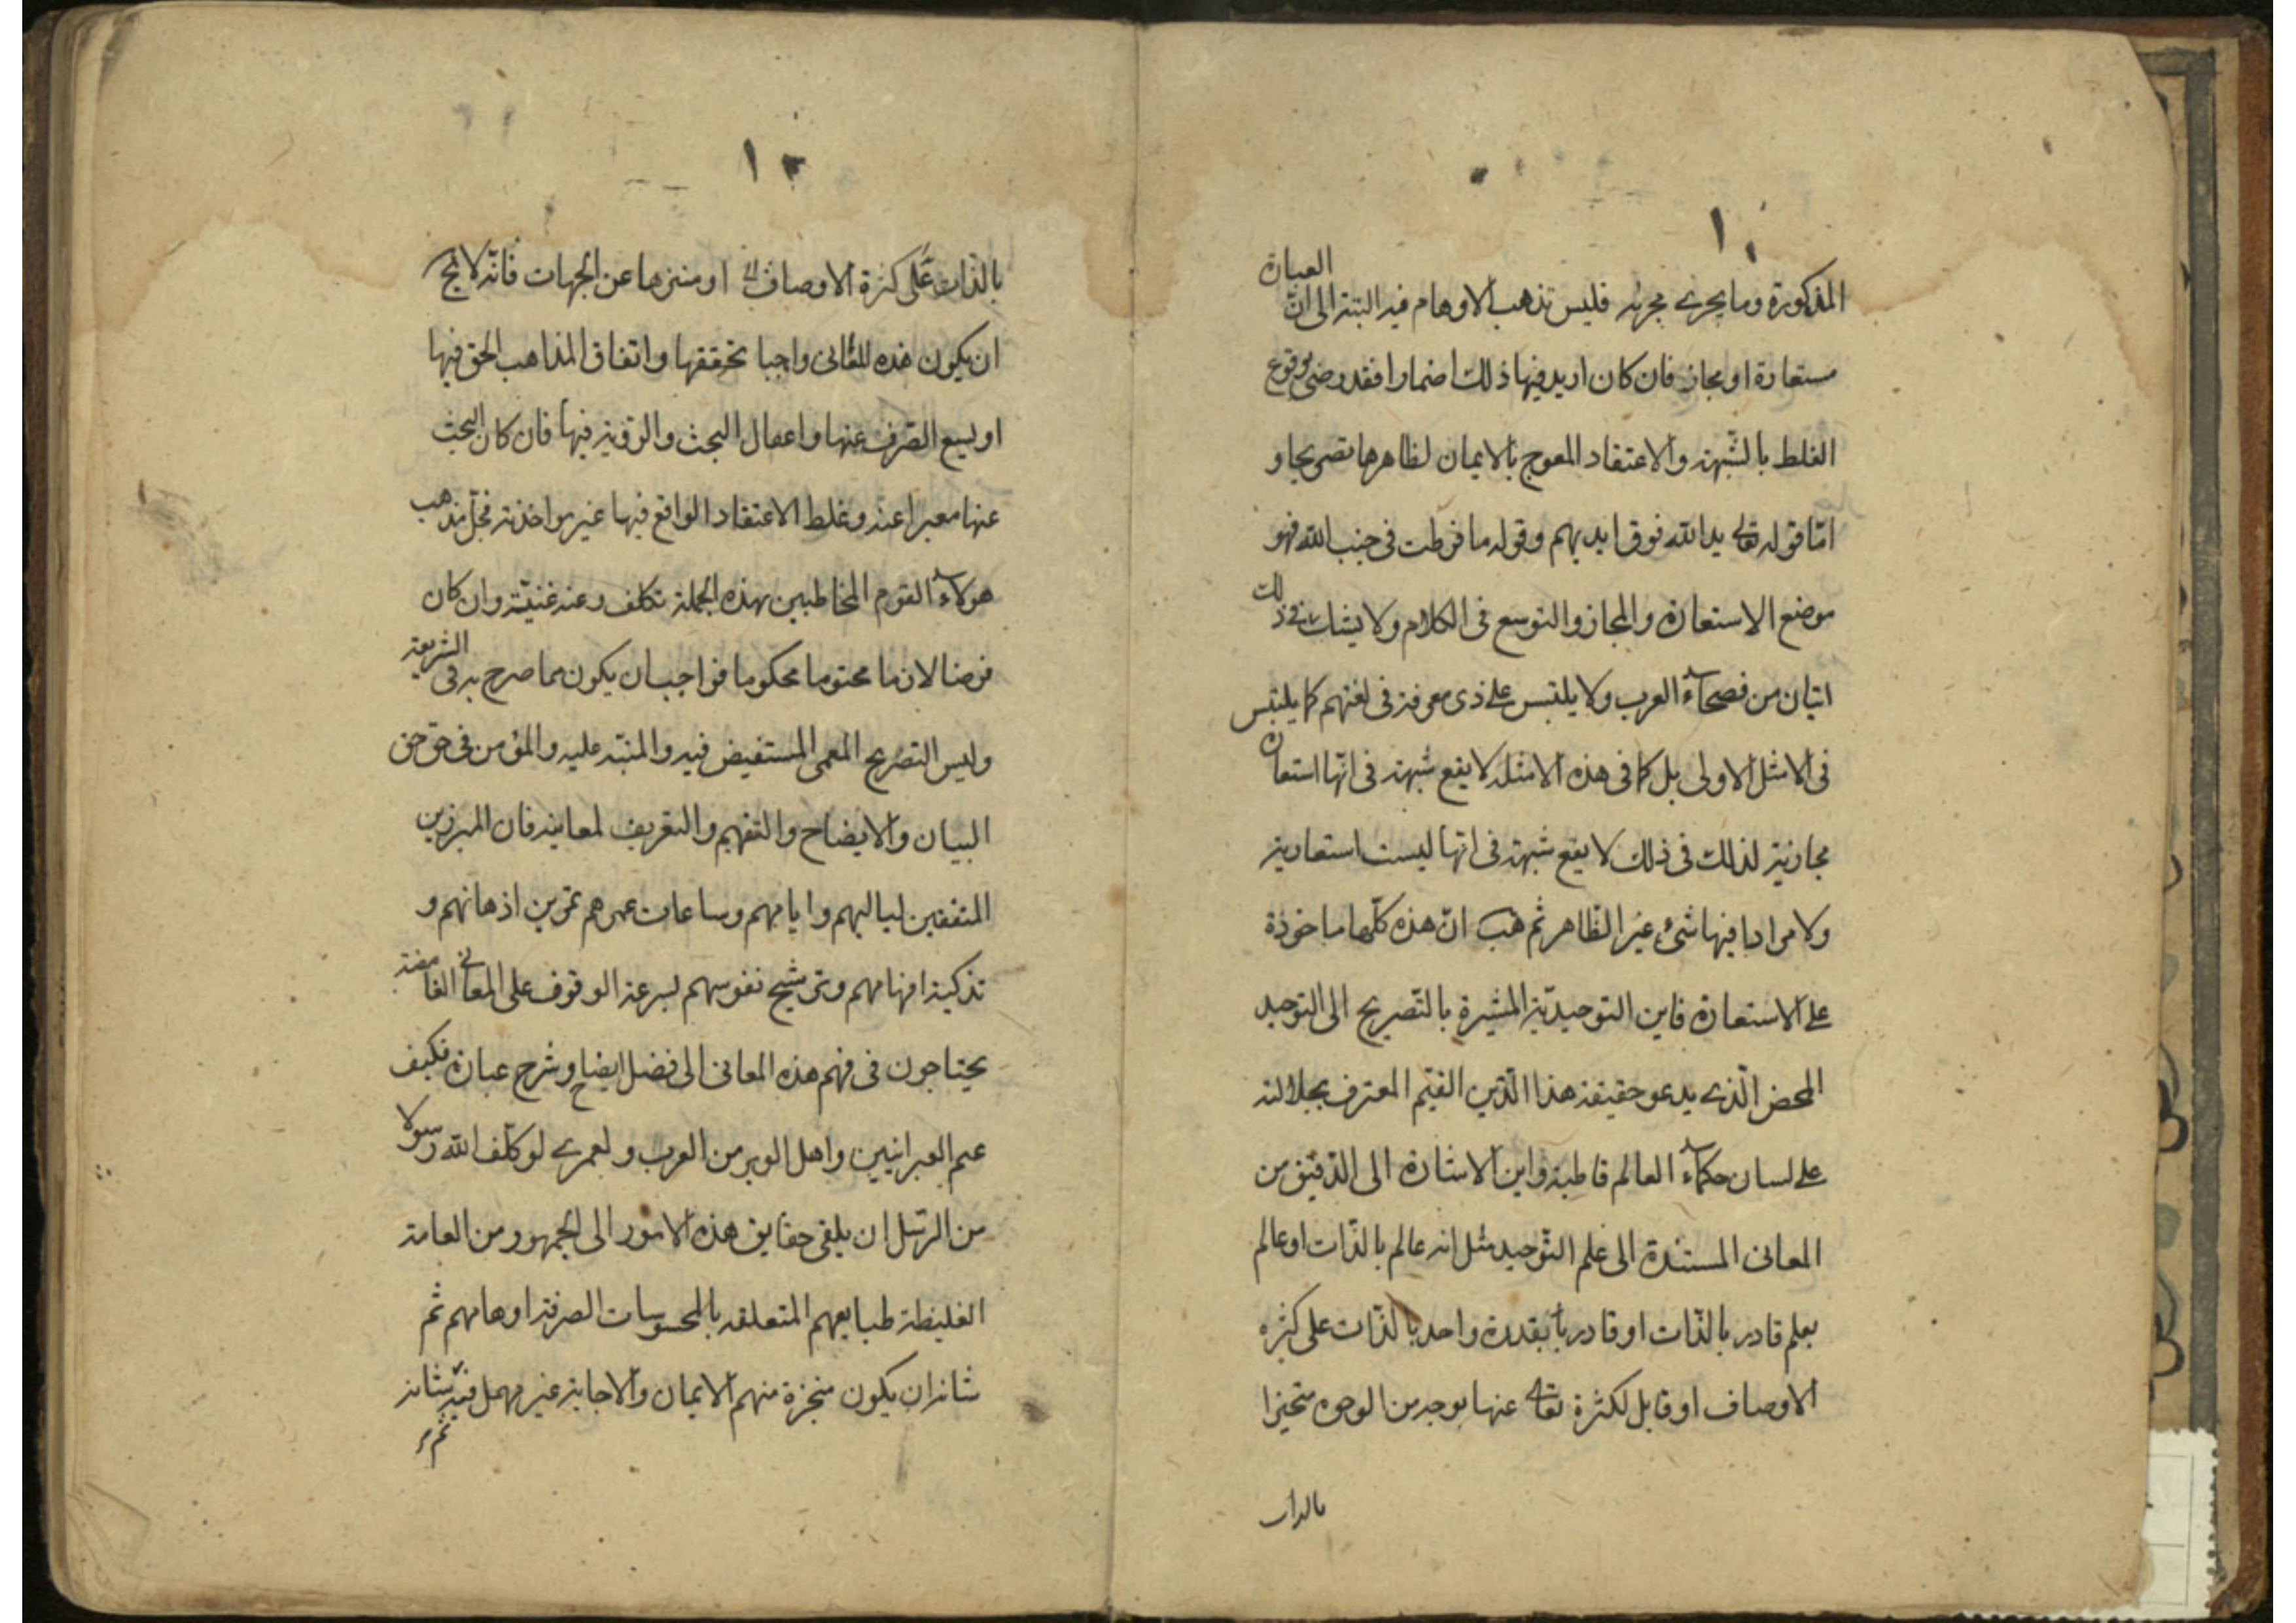 ١٠
المذكورة وما يجرى مجريه فليس تذهب الاوهام فيه البتة الى ان العبارة
مستعارة او مجاز فان كان اريد فيها ذلك اضمارا فقد رضى بوقوع
الغلط بالشبهة والاعتقاد المعوج بالايمان لظاهرها تصريحا و
امّا قوله تعالى يد الله فوق ايديهم وقوله ما فرطت فى جنب الله فهو
موضع الاستعارة والمجاز والتوسع فى الكلام ولا يشك فى ذلك
اثنان من فصحاء العرب ولا يلتبس على ذى معرفة فى لغتهم كما يلتبس
فى الامثل الاولى بل كما فى هذه الامثلة لا يقع شبهة فى انّها استعارة
مجازية لذلك فى ذلك لا يقع شبهة فى انها ليست استعارية
ولا مرادا فيها شىء غير الظاهر ثم هب انّ هذه كلّها ماخوذة
على الاستعارة فاين التوحيديّة المشيرة بالتّصريح الى التوحيد
المحض الّذى يدعو حقيقة هذا الدّين القيّم المعترف بجلالته
على لسان حكماء العالم قاطبة واين الاشارة الى الدّقيق من
المعانى المستندة الى علم التّوحيد مثل انه عالم بالذّات او عالم
بعلم قادر بالذّات او قادر بقدرة واحد بالذّات على كثرة
الاوصاف او قابل لكثرة تعالى عنها بوجه من الوجوه متحيزا
بالذات
١٠
بالذّات على كثرة الاوصاف او منزها عن الجهات فانّه لا يخ
ان يكون هذه المعانى واجبا تحققها واتفاق المذاهب الحق فيها
او يسع الصّرف عنها واعمال البحث والرؤية فيها فان كان البحث
عنها معبرا عنه وغلط الاعتقاد الواقع فيها غير مواخذ به فجلّ مذهب
هولاء القوم المخاطبين بهذه الجملة تكلف وعنه غنيّة وان كان
فرضا لازما محتوما محكوما فواجب ان يكون مما صرح به فى الشريعة
وليس التصريح المعمى المستفيض فيه والمنبّه عليه والموٴمن فى حق حق
البيان والايضاح والتفهيم والتعريف لمعانيه فان المبرزين
المتفقين لياليهم وايامهم وساعات عمرهم تمرين اذهانهم و
تذكية افهامهم وترشيح نفوسهم لسرعة الوقوف على المعانى الغامضة
يحتاجون فى فهم هذه المعانى الى فضل ايضاح وشرح عبارة فكيف
عبم العبرانيين واهل الوبر من العرب ولعمرى لو كلّف الله رسولا
من الرّسل ان يلقى حقايق هذه الامور الى الجمهور من العامة
الغليظة طبايعهم المتعلقه بالمحسوسات الصرفة اوهامهم ثم
شانه ان يكون منجزة منهم الايمان والاجابة غير مهمل فيه شانه